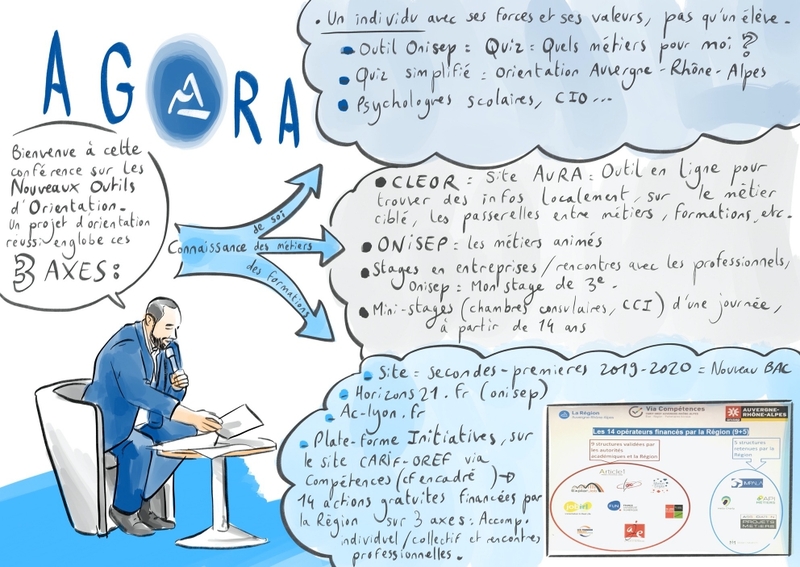 AGORA
Bienvenue à cette
conférence sur les
Nouveaux Outils
d'Orientation.
Un projet d'orientation
réussi englobe ces
3 AXES :
Connaissance
de soi
des métiers
des formations
• Un individu avec ses forces et ses valeurs, pas qu'un élève.
• Outil Onisep : Quiz : Quels métiers pour moi ?
• Quiz simplifié : Orientation Auvergne-Rhône-Alpes
• Psychologues scolaires, CIO...
• CLEOR : Site AuRA : Outil en ligne pour
trouver des infos localement, sur le métier
ciblé, les passerelles entre métiers, formations, etc.
• ONiSEP : les métiers animés
• Stages en entreprises / rencontres avec les professionnels,
Onisep : Mon stage de 3e.
• Mini-stages (chambres consulaires, CCI) d'une journée,
à partir de 14 ans
• Site : secondes-premieres 2019-2020 = Nouveau BAC
• Horizons21.fr (onisep)
• Ac-lyon.fr
• Plate-forme Initiatives, sur
le site CARIF-OREF via
Compétences (cf encadré) →
14 actions gratuites financées par
la Région sur 3 axes : Accomp.
individuel/collectif et rencontres
professionnelles.
La Région
Via Compétences
AUVERGNE-RHÔNE-ALPES
Les 14 opérateurs financés par la Région (9+5)
9 structures validées par
les autorités
académiques et la Région
5 structures
retenues par la
Région
Article1